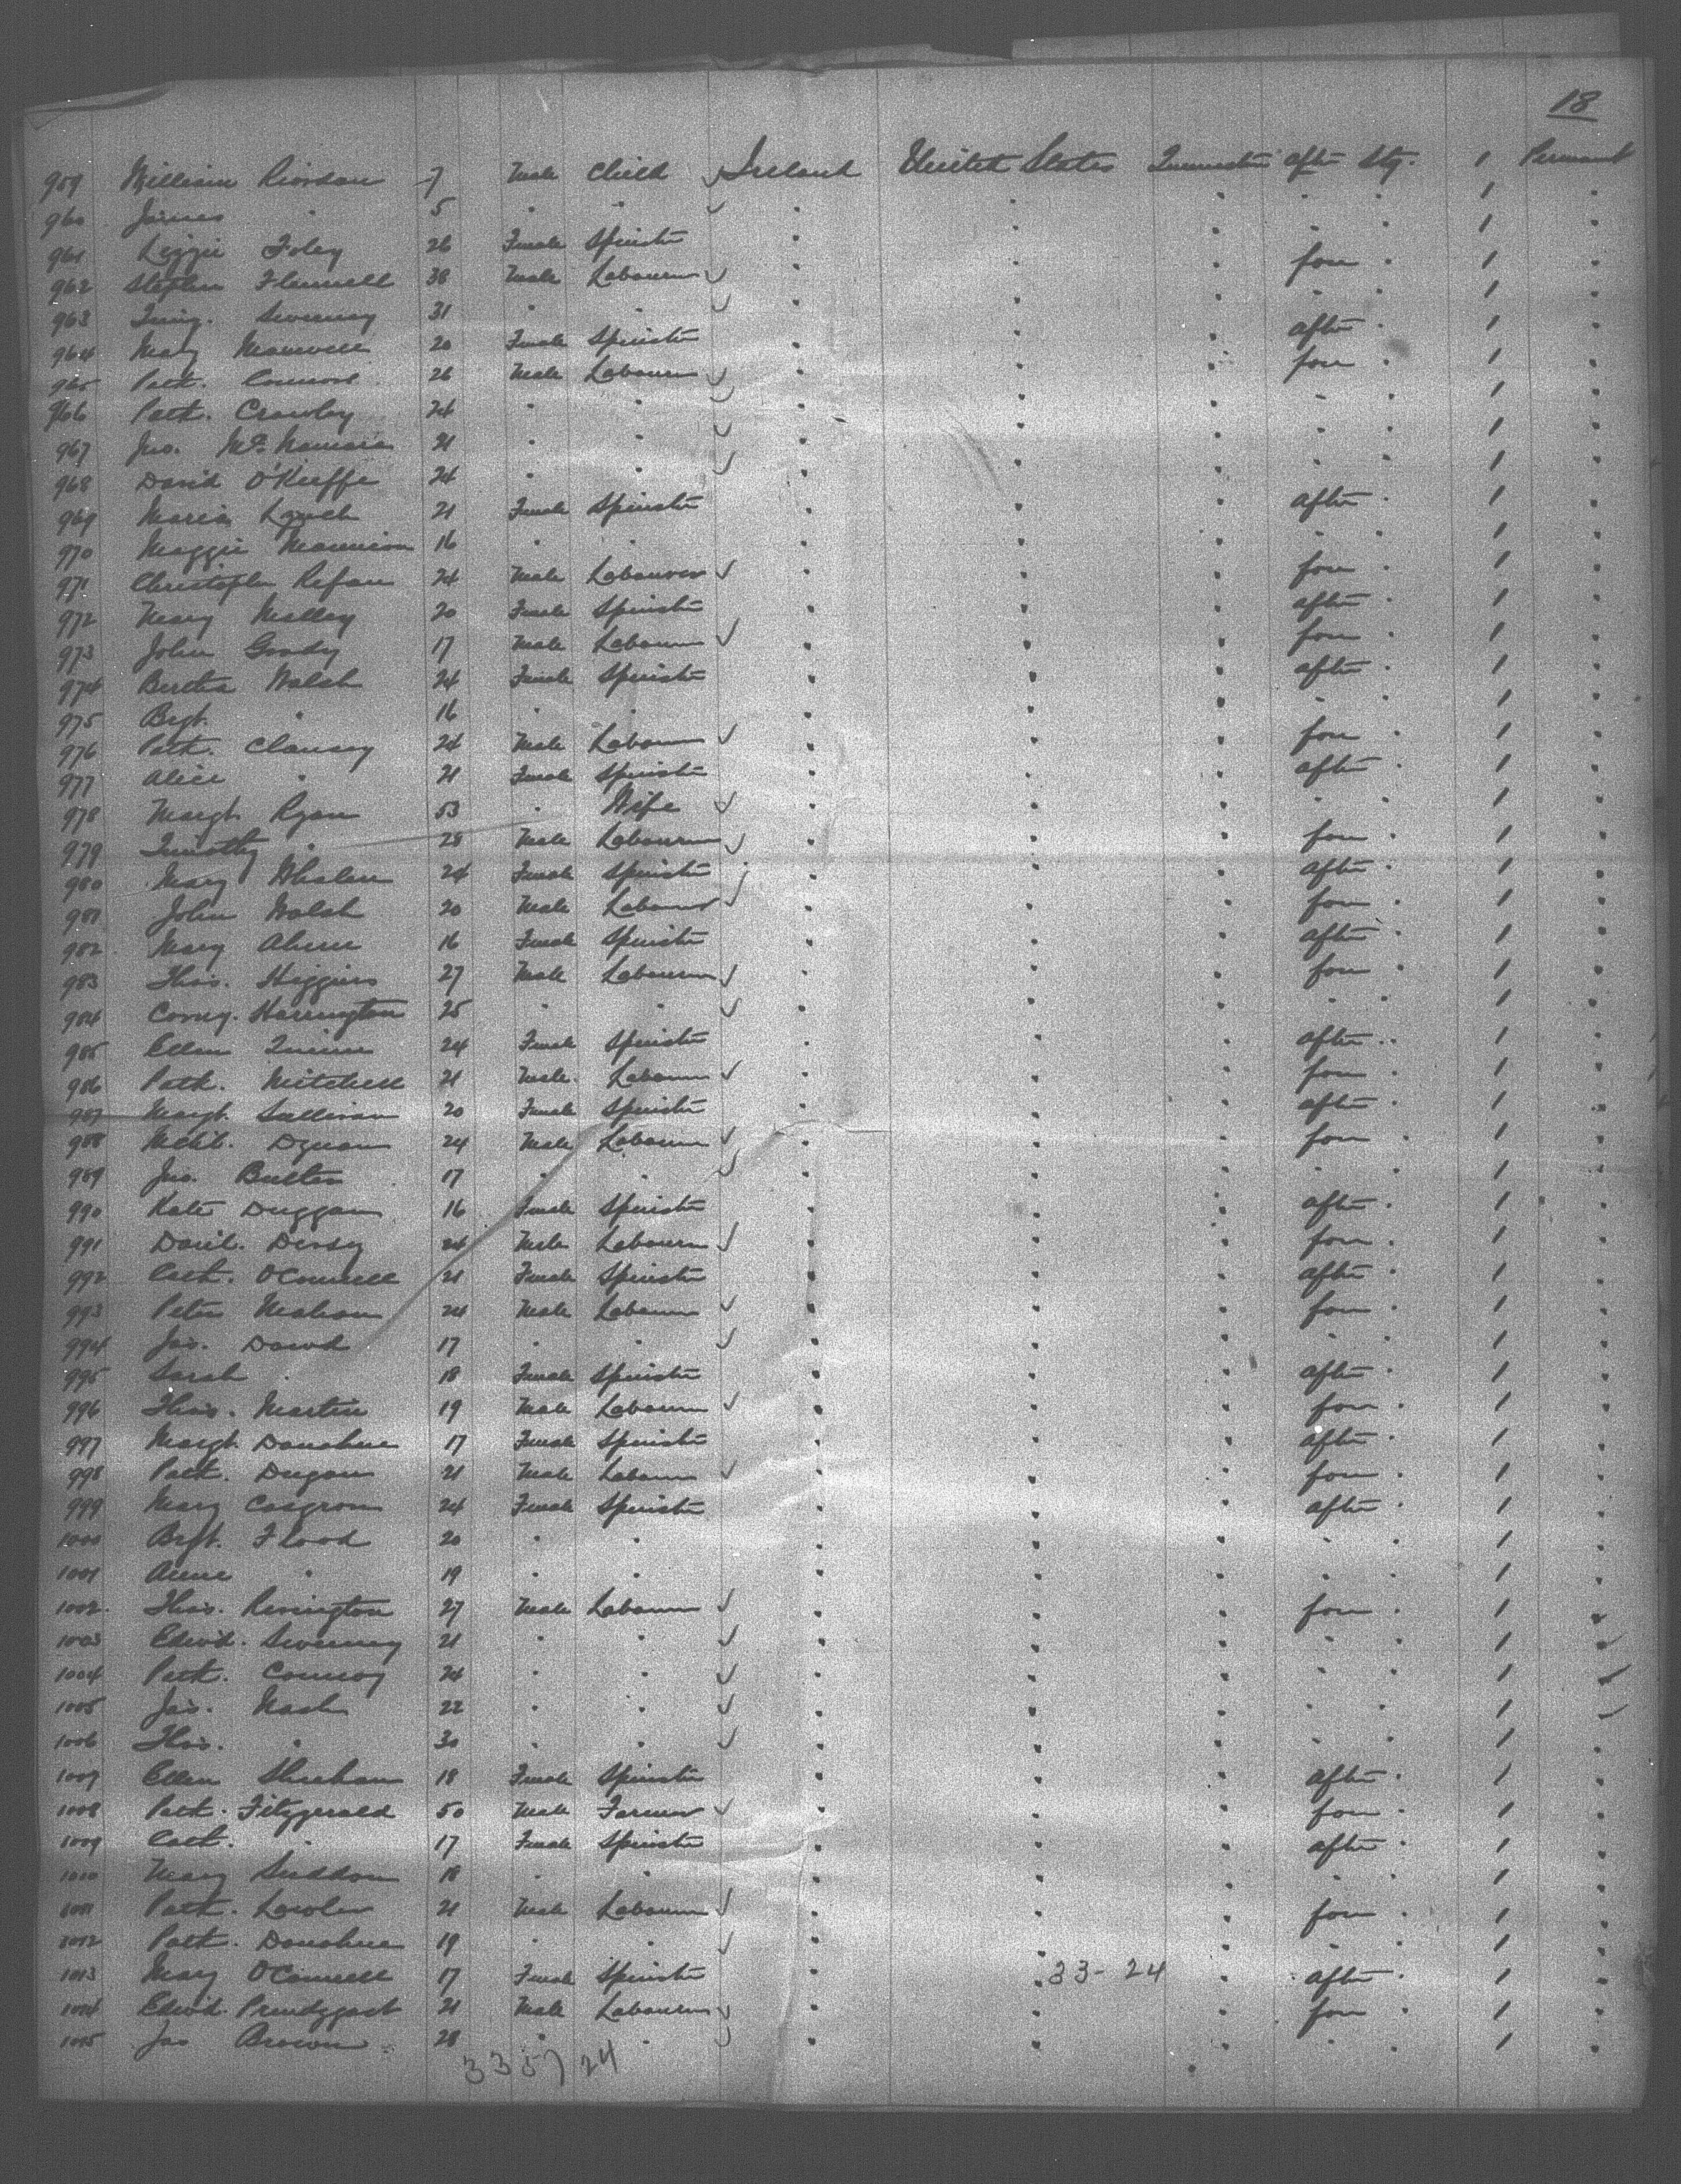 18
959 William Riordan 7 Male Child Ireland United States after Stg. 1
960 James " 5 " " " " " " " 1 "
961 Lizzie Foley 26 Female Spinster " " " " " 1 "
962 Stephen 38 Male Labourer " " " fore " 1 "
963 Sweeney 31 " " " " " " " 1 "
964 Mary 20 Female Spinster " " " after " 1 "
965 Patk. Connors 26 Male Labourer " " " fore " 1 "
966 Patk. Crowley 24 " " " " " " " 1 "
967 Jno. McNamara 21 " " " " " " " 1 "
968 David O'Keeffe 24 " " " " " " " 1 "
969 Maria Lynch 21 Female Spinster " " " after " 1 "
970 Maggie Mannion 16 " " " " " " " 1 "
971 Christopher 24 Male Labourer " " " fore " 1 "
972 Mary Malley 20 Female Spinster " " " after " 1 "
973 John 17 Male Labourer " " " fore " 1 "
974 Walsh 24 Female Spinster " " " after " 1 "
975 Brgt. " 16 " " " " " " " 1 "
976 Patk. Clancy 24 Male Labourer " " " fore " 1 "
977 Alice " 21 Female Spinster " " " after " 1 "
978 Margt. Ryan 53 " Wife " " " " " 1 "
979 Timothy " 28 Male Labourer " " " fore " 1 "
980 Mary Whelan 24 Female Spinster " " " after " 1 "
981 John Walsh 20 Male Labourer " " " fore " 1 "
982 Mary Ahern 16 Female Spinster " " " after " 1 "
983 Thos. Higgins 27 Male Labourer " " " fore " 1 "
984 Harrington 25 " " " " " " " 1 "
985 Ellen Quinn 24 Female Spinster " " " after " 1 "
986 Patk. Mitchell 21 Male Labourer " " " fore " 1 "
987 Margt. Sullivan 20 Female Spinster " " " after " 1 "
988 24 Male Labourer " " " fore " 1 "
989 Jno. Butler 17 " " " " " " " 1 "
990 Kate Duggan 16 Female Spinster " " " after " 1 "
991 24 Male Labourer " " " fore " 1 "
992 Cath. O'Connell 21 Female Spinster " " " after " 1 "
993 Peter Mahon 24 Male Labourer " " " fore " 1 "
994 Jas. Dowd 17 " " " " " " " 1 "
995 Sarah " 18 Female Spinster " " " after " 1 "
996 Thos. Martin 19 Male Labourer " " " fore " 1 "
997 Margt. Donohue 17 Female Spinster " " " after " 1 "
998 Patk. Dugan 21 Male Labourer " " " fore " 1 "
999 Mary 24 Female Spinster " " " after " 1 "
1000 Brgt. Flood 20 " " " " " " " 1 "
1001 Anne " 19 " " " " " " " 1 "
1002 Thos. 27 Male Labourer " " " fore " 1 "
1003 Edwd. Sweeney 21 " " " " " " " 1
1004 Patk. Conroy 24 " " " " " " " 1
1005 Jas. Nash 22 " " " " " " " 1
1006 Thos. " 30 " " " " " " " 1 "
1007 Ellen Sheehan 18 Female Spinster " " " after " 1 "
1008 Patk. Fitzgerald 50 Male Farmer " " " fore " 1 "
1009 Cath. " 17 Female Spinster " " " after " 1 "
1010 Mary 18 " " " " " " " 1 "
1011 Patk. Lawler 21 Male Labourer " " " fore " 1 "
1012 Patk. Donohue 19 " " " " " " " 1 "
1013 Mary O'Connell 17 Female Spinster " " 33-24 " after " 1 "
1014 Edwd. Prendergast 21 Male Labourer " " " fore " 1 "
1015 Jas Brown 28 " " " " " " " 1 "
335724